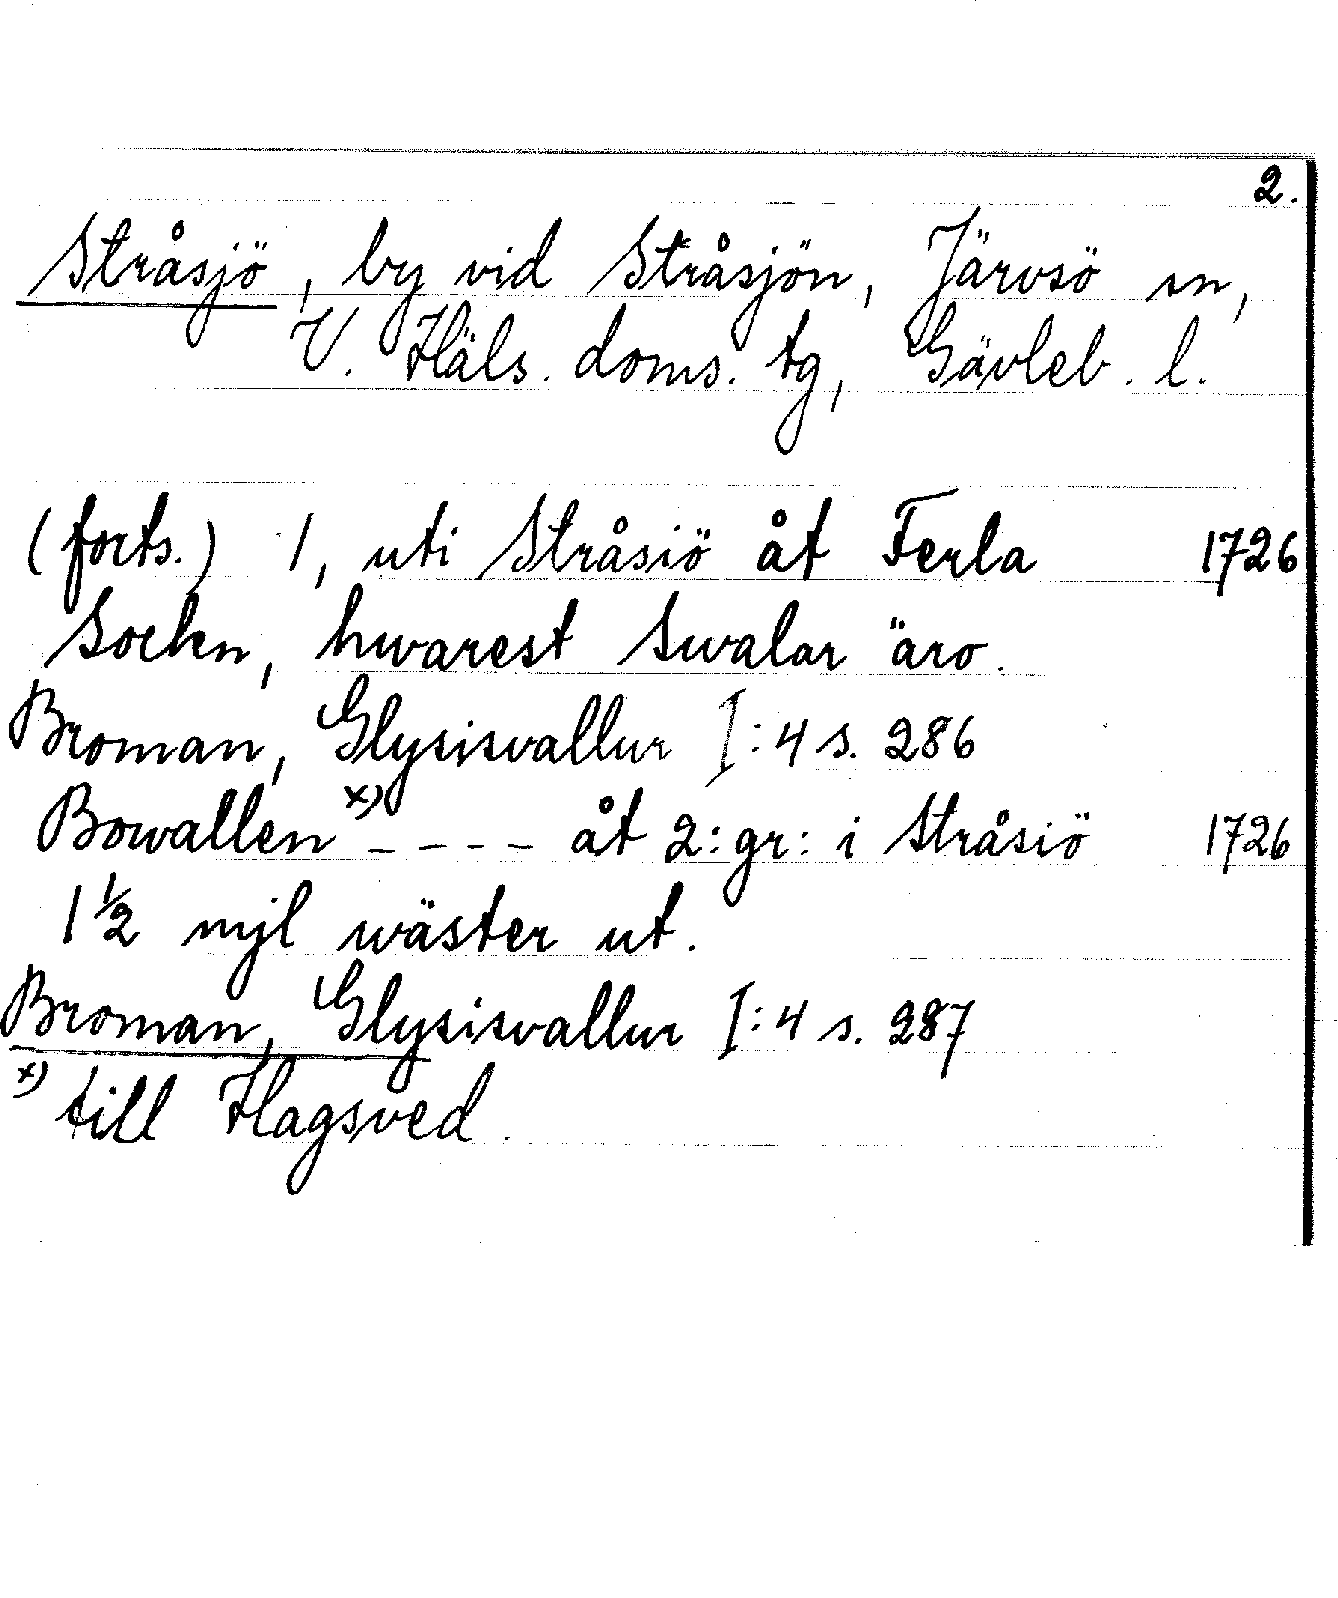 2.
Stråsjö, by vid Stråsjön, Järvsö sn,
V. Häls. doms. tg, Gävleb. l.
(forts.) 1, uti Stråsiö åt Ferla 1726
Sockn, hwarest Swalar äro.
Broman, Glysisvallur I:4 s. 286
Bowallen x) - - - - åt 2:gr: i Stråsiö 1726
1 1/2 mjl wäster ut.
Broman, Glysisvallur I:4 s. 287
x) till Hagsved.